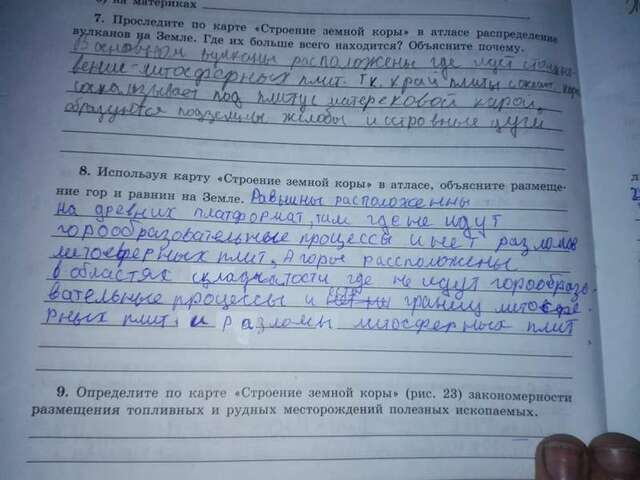 б) на материках
7. Проследите по карте «Строение земной коры» в атласе распределение
вулканов на Земле. Где их больше всего находится? Объясните почему.
В основном вулканы расположены где идут
вение литосферных плит. Т.к. край плиты
под плиту материковой корой,
образуются подземны желобы и островные дуги
8. Используя карту «Строение земной коры» в атласе, объясните размеще-
ние гор и равнин на Земле. Равнины расположенны
на древних платформат, там где не идут
горообразовательные процессы и нет разломов
литосферных плит, А горы рассположены
в областях складчатости где не идут горообразо-
вательные процессы и границ литосфе
рных плит, и разломы литосферных плит
9. Определите по карте «Строение земной коры» (рис. 23) закономерности
размещения топливных и рудных месторождений полезных ископаемых.